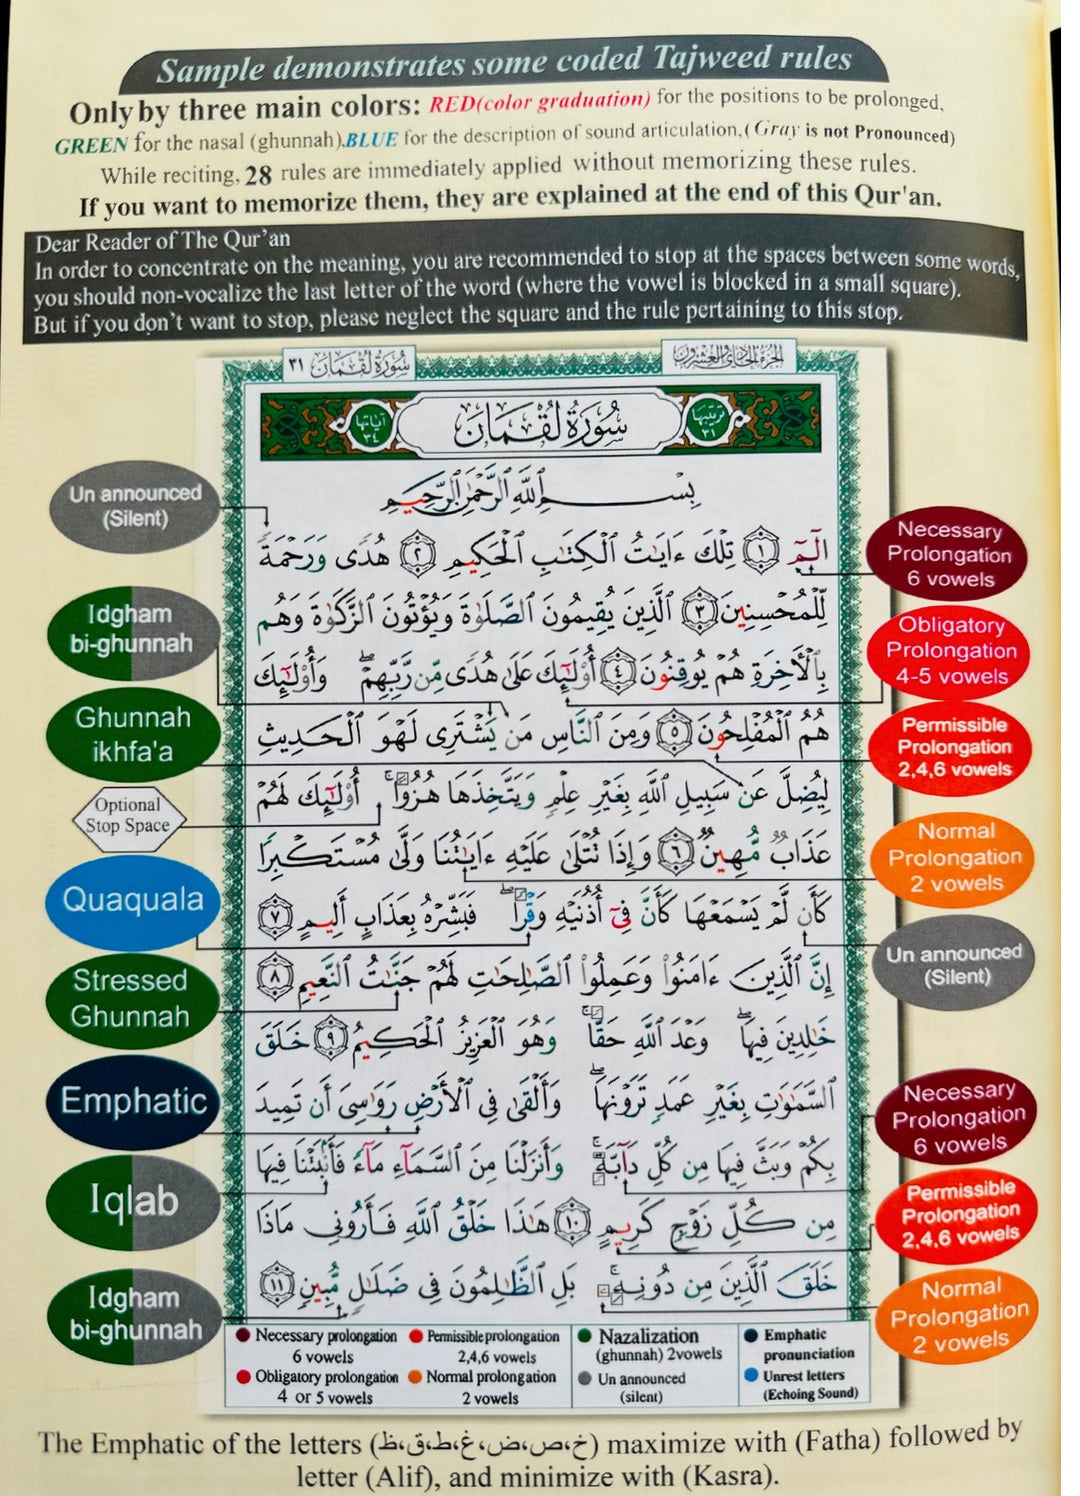 Sample demonstrates some coded Tajweed rules
Only by three main colors: RED(color graduation) for the positions to be prolonged,
GREEN for the nasal (ghunnah),BLUE for the description of sound articulation,( Gray is not Pronounced)
While reciting, 28 rules are immediately applied without memorizing these rules.
If you want to memorize them, they are explained at the end of this Qur'an.
Dear Reader of The Qur'an
In order to concentrate on the meaning, you are recommended to stop at the spaces between some words,
you should non-vocalize the last letter of the word (where the vowel is blocked in a small square).
But if you don't want to stop, please neglect the square and the rule pertaining to this stop.
سُورَةُ لُقْمَان ٣١
الجزء الحادي والعشرون
ترتيبها ٣١
سُورَةُ لُقْمَان
آياتها ٣٤
بِسْمِ ٱللَّهِ ٱلرَّحْمَٰنِ ٱلرَّحِيمِ
الٓمٓ ١ تِلْكَ ءَايَٰتُ ٱلْكِتَٰبِ ٱلْحَكِيمِ ٢ هُدًى وَرَحْمَةً
لِّلْمُحْسِنِينَ ٣ ٱلَّذِينَ يُقِيمُونَ ٱلصَّلَوٰةَ وَيُؤْتُونَ ٱلزَّكَوٰةَ وَهُم
بِٱلْءَاخِرَةِ هُمْ يُوقِنُونَ ٤ أُو۟لَٰٓئِكَ عَلَىٰ هُدًى مِّن رَّبِّهِمْ ۖ وَأُو۟لَٰٓئِكَ
هُمُ ٱلْمُفْلِحُونَ ٥ وَمِنَ ٱلنَّاسِ مَن يَشْتَرِى لَهْوَ ٱلْحَدِيثِ
لِيُضِلَّ عَن سَبِيلِ ٱللَّهِ بِغَيْرِ عِلْمٍ وَيَتَّخِذَهَا هُزُوًا ۚ أُو۟لَٰٓئِكَ لَهُمْ
عَذَابٌ مُّهِينٌ ٦ وَإِذَا تُتْلَىٰ عَلَيْهِ ءَايَٰتُنَا وَلَّىٰ مُسْتَكْبِرًا
كَأَن لَّمْ يَسْمَعْهَا كَأَنَّ فِىٓ أُذُنَيْهِ وَقْرًا ۖ فَبَشِّرْهُ بِعَذَابٍ أَلِيمٍ ٧
إِنَّ ٱلَّذِينَ ءَامَنُوا۟ وَعَمِلُوا۟ ٱلصَّٰلِحَٰتِ لَهُمْ جَنَّٰتُ ٱلنَّعِيمِ ٨
خَٰلِدِينَ فِيهَا ۖ وَعْدَ ٱللَّهِ حَقًّا ۚ وَهُوَ ٱلْعَزِيزُ ٱلْحَكِيمُ ٩ خَلَقَ
ٱلسَّمَٰوَٰتِ بِغَيْرِ عَمَدٍ تَرَوْنَهَا ۖ وَأَلْقَىٰ فِى ٱلْأَرْضِ رَوَٰسِىَ أَن تَمِيدَ
بِكُمْ وَبَثَّ فِيهَا مِن كُلِّ دَآبَّةٍ ۚ وَأَنزَلْنَا مِنَ ٱلسَّمَآءِ مَآءً فَأَنۢبَتْنَا فِيهَا
مِن كُلِّ زَوْجٍ كَرِيمٍ ١٠ هَٰذَا خَلْقُ ٱللَّهِ فَأَرُونِى مَاذَا
خَلَقَ ٱلَّذِينَ مِن دُونِهِۦ ۚ بَلِ ٱلظَّٰلِمُونَ فِى ضَلَٰلٍ مُّبِينٍ ١١
Un announced
(Silent)
Idgham
bi-ghunnah
Ghunnah
ikhfa'a
Optional
Stop Space
Quaquala
Stressed
Ghunnah
Emphatic
Iqlab
Idgham
bi-ghunnah
Necessary
Prolongation
6 vowels
Obligatory
Prolongation
4-5 vowels
Permissible
Prolongation
2,4,6 vowels
Normal
Prolongation
2 vowels
Un announced
(Silent)
Necessary
Prolongation
6 vowels
Permissible
Prolongation
2,4,6 vowels
Normal
Prolongation
2 vowels
Necessary prolongation
6 vowels
Obligatory prolongation
4 or 5 vowels
Permissible prolongation
2,4,6 vowels
Normal prolongation
2 vowels
Nazalization
(ghunnah) 2vowels
Un announced
(silent)
Emphatic
pronunciation
Unrest letters
(Echoing Sound)
The Emphatic of the letters (خ،ص،ض،غ،ط،ق،ظ) maximize with (Fatha) followed by
letter (Alif), and minimize with (Kasra).